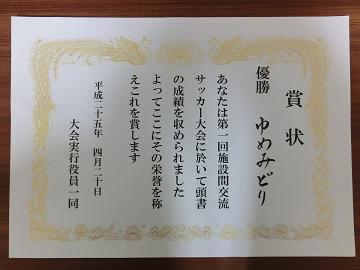 賞状
優勝 ゆめみどり
あなたは第一回施設間交流
サッカー大会に於いて頭書
の成績を収められました
よってここにその栄誉を称
えこれを賞します
平成二十五年 四月二十日
大会実行役員一同